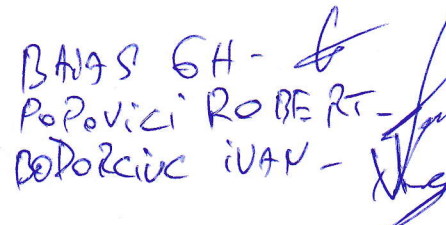 BAJAS GH -
POPOVICI ROBERT -
BODORCIUC IVAN -